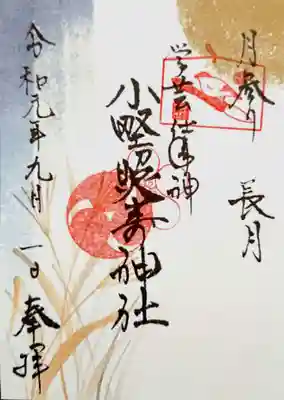 月参り
長月
学芸の神
小野照崎神社
令和元年九月一日奉拝